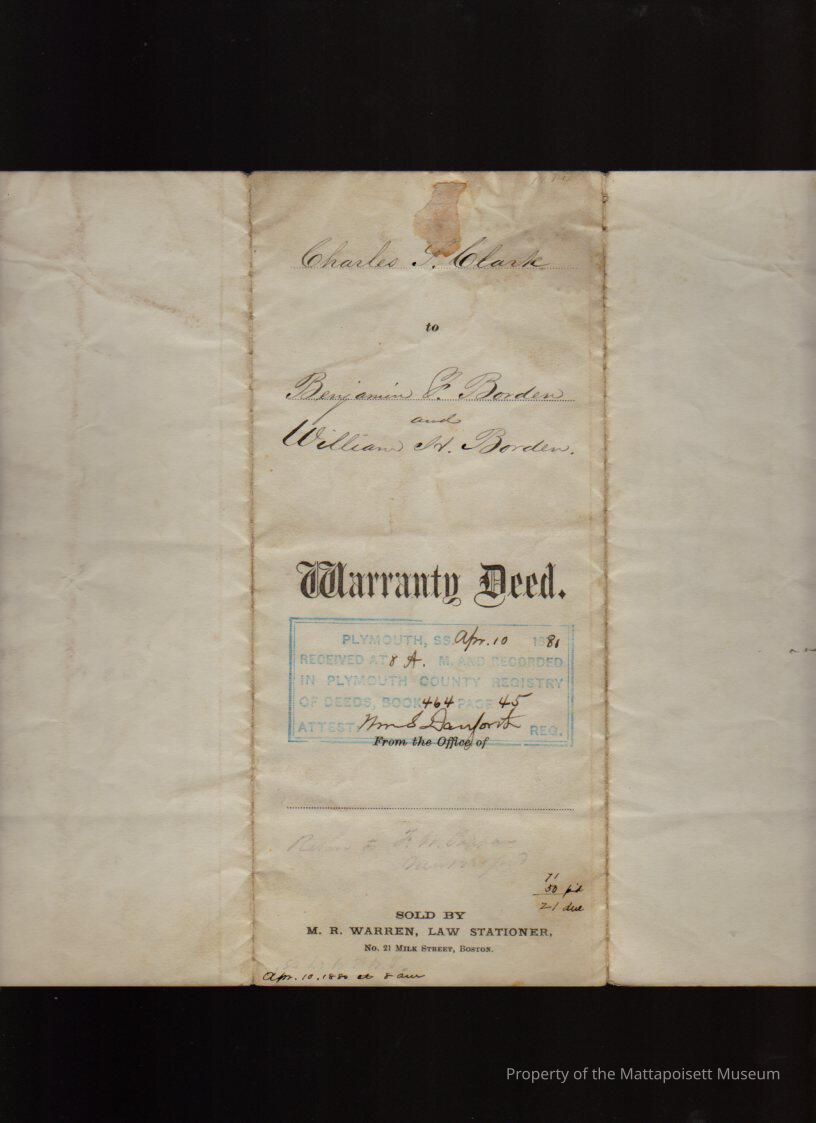 Charles F. Clark
to
Benjamin F. Borden
and
William H. Borden.
Warranty Deed.
PLYMOUTH, SS. Apr. 10 1880
RECEIVED AT 8 A. M. AND RECORDED
IN PLYMOUTH COUNTY REGISTRY
OF DEEDS, BOOK 464 PAGE 45
ATTEST Wm S Danforth REG.
From the Office of
Return to F. W.
71
50 p'd
21 due
SOLD BY
M. R. WARREN, LAW STATIONER,
No. 21 MILK STREET, BOSTON.
Apr. 10. 1880 at 8 am
Property of the Mattapoisett Museum